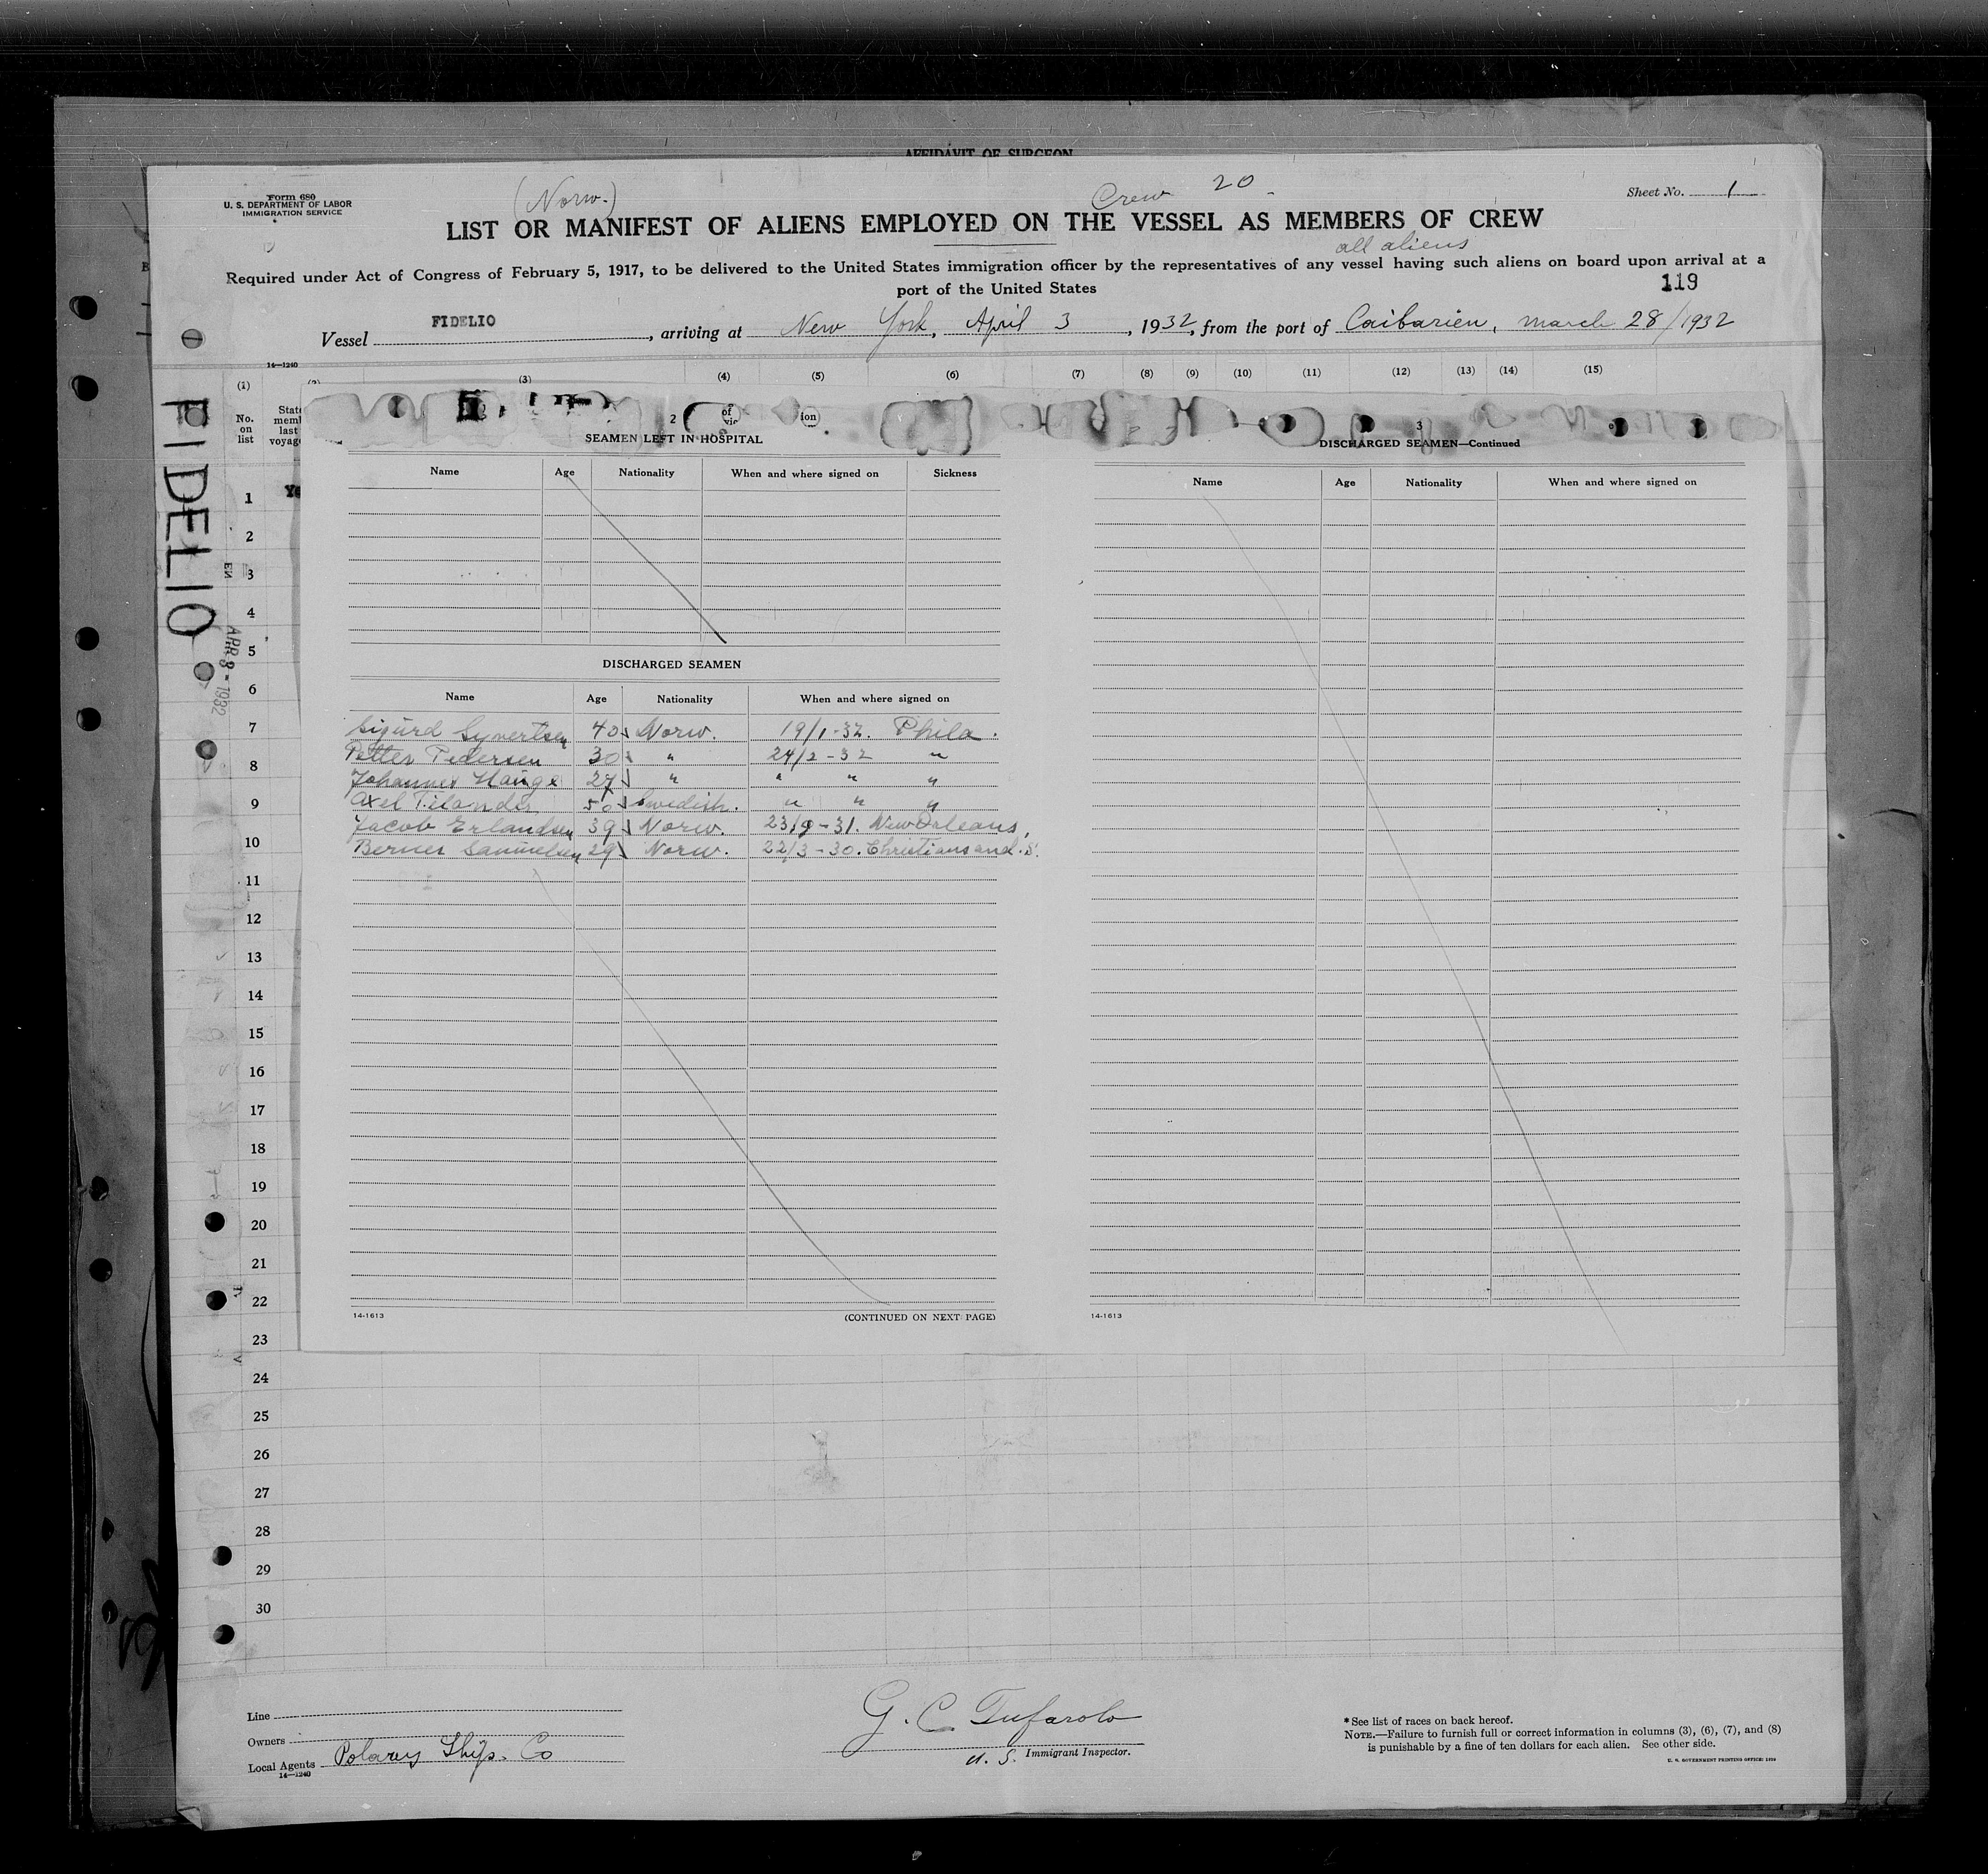 AFFIDAVIT OF SURGEON
Form 680
U. S. DEPARTMENT OF LABOR
IMMIGRATION SERVICE
(Norw.)
Crew 20
Sheet No. 1
LIST OR MANIFEST OF ALIENS EMPLOYED ON THE VESSEL AS MEMBERS OF CREW
all aliens
Required under Act of Congress of February 5, 1917, to be delivered to the United States immigration officer by the representatives of any vessel having such aliens on board upon arrival at a
port of the United States
119
Vessel FIDELIO, arriving at New York, April 3, 1932, from the port of Caibarien, march 28/1932
14—1240
(1) (2) (3) (4) (5) (6) (7) (8) (9) (10) (11) (12) (13) (14) (15)
No. on list
FIDELIO
APR 8 - 1932
2
SEAMEN LEFT IN HOSPITAL
Name Age Nationality When and where signed on Sickness
DISCHARGED SEAMEN
Name Age Nationality When and where signed on
Sigurd Syvertsen 40 Norw. 19/1-32. Phila.
Petter Pedersen 30 " 24/2-32 "
Johannes Hauge 27 " " " "
Axel Tilander 50 Swedish. " " "
Jacob Erlandsen 39 Norw. 23/9-31. New Orleans,
Berner Samuelsen 29 Norw. 22/3-30. Christiansand. S.
14-1613
(CONTINUED ON NEXT PAGE)
3
DISCHARGED SEAMEN—Continued
Name Age Nationality When and where signed on
14-1613
1
2
3
4
5
6
7
8
9
10
11
12
13
14
15
16
17
18
19
20
21
22
23
24
25
26
27
28
29
30
Line
Owners
Local Agents Polarus Ship. Co
14—1240
G. C. Tufarolo
U. S. Immigrant Inspector.
* See list of races on back hereof.
NOTE.—Failure to furnish full or correct information in columns (3), (6), (7), and (8)
is punishable by a fine of ten dollars for each alien. See other side.
U. S. GOVERNMENT PRINTING OFFICE: 1929